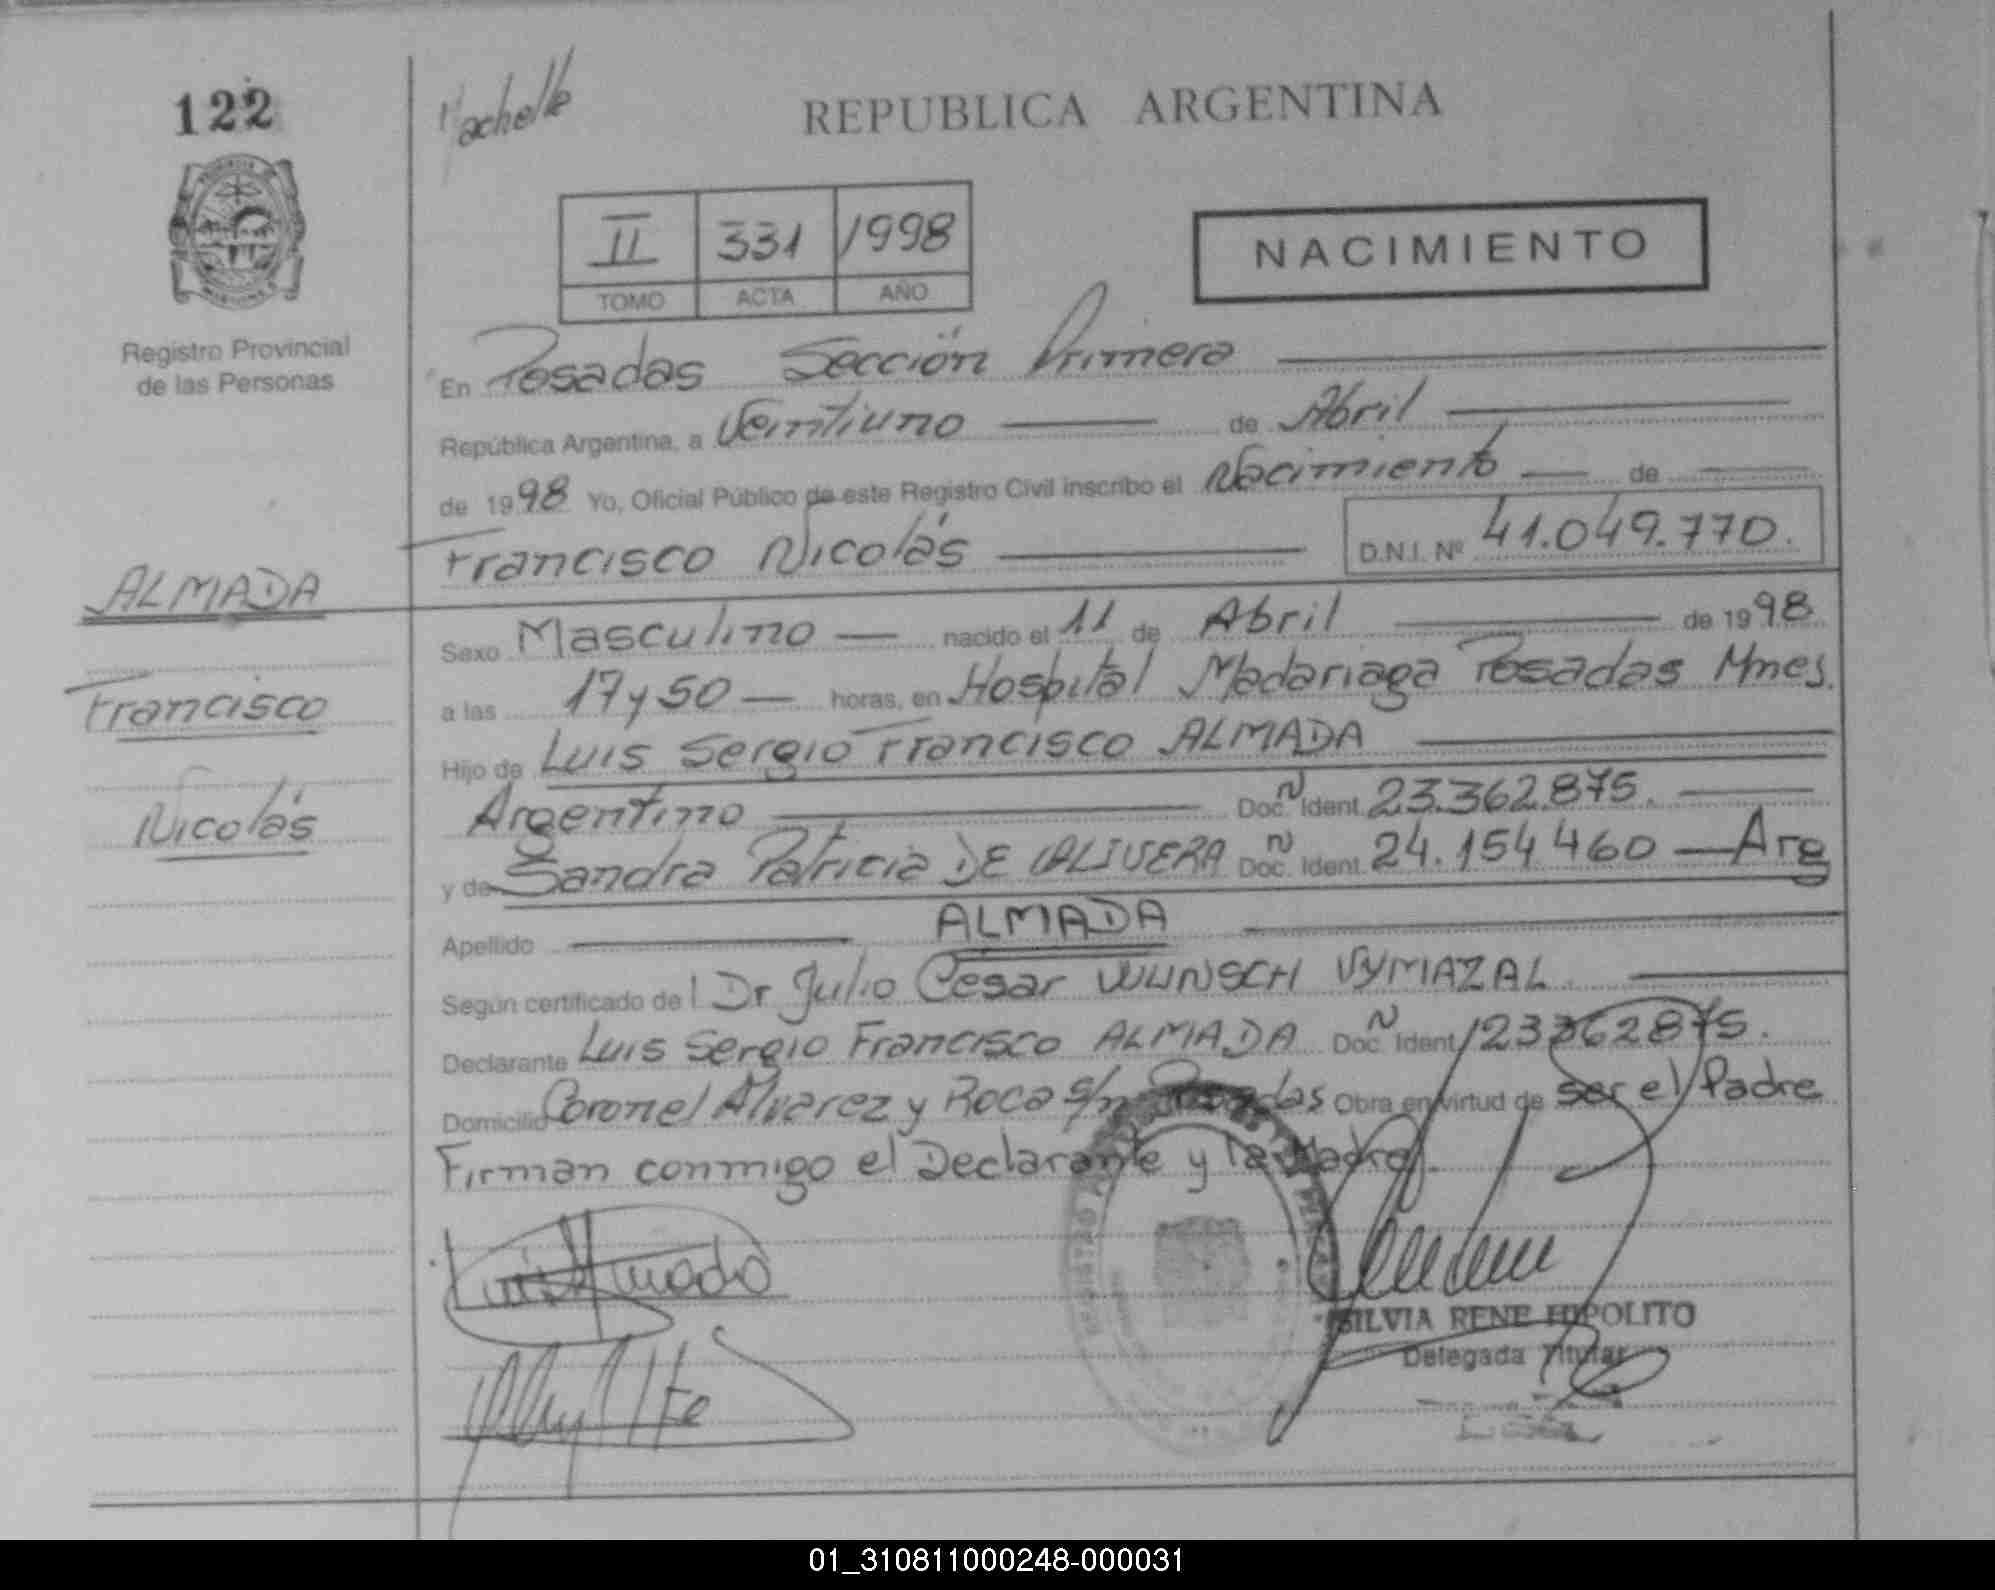 122
REPUBLICA ARGENTINA
II 331 1998
TOMO ACTA AÑO
NACIMIENTO
Registro Provincial
de las Personas
En Posadas Sección Primera
República Argentina, a Veintiuno de Abril
de 1998 Yo, Oficial Público de este Registro Civil inscribo el Nacimiento de
Francisco Nicolás D.N.I. Nº 41.049.770.
ALMADA
Francisco
Nicolás
Sexo Masculino nacido el 11 de Abril de 1998
a las 17 y 50 horas, en Hospital Madariaga Posadas Mnes.
Hijo de Luis Sergio Francisco ALMADA
Argentino Doc. N Ident. 23.362.875.
y de Sandra Patricia DE OLIVERA Doc. N Ident. 24.154.460 Arg
Apellido ALMADA
Según certificado del Dr Julio Cesar WUNSCH VYMAZAL
Declarante Luis Sergio Francisco ALMADA Doc. N Ident. 23362875.
Domicilio Coronel Alvarez y Roca s/n Posadas Obra en virtud de ser el Padre
Firman conmigo el Declarante y la Madre.
Luis Almada
SILVIA RENE HIPOLITO
Delegada Titular
01_310811000248-000031